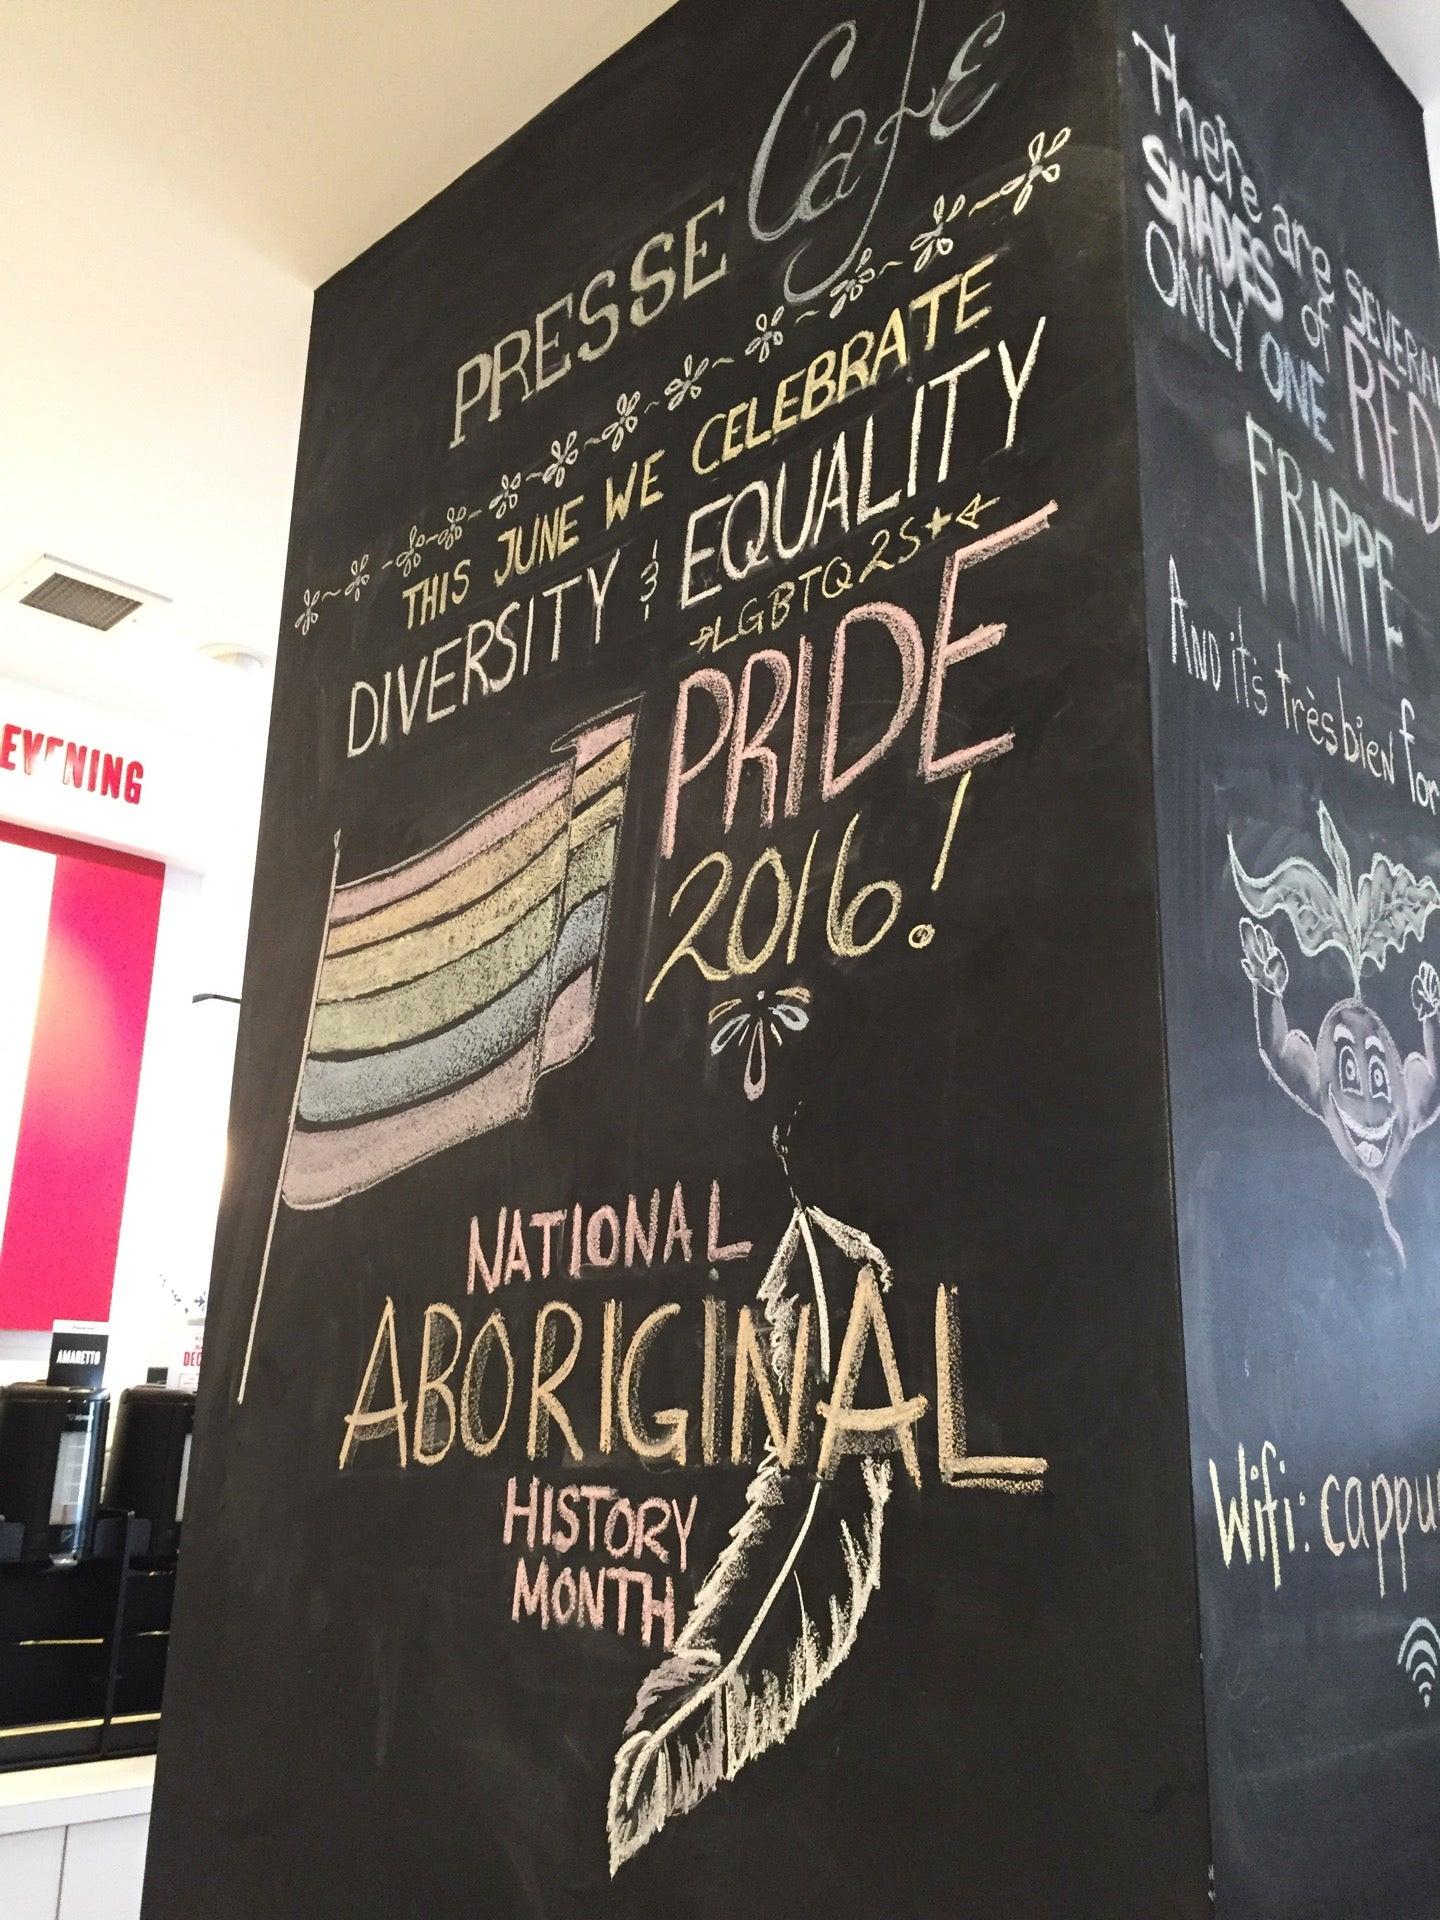 PRESSE Café
THIS JUNE WE CELEBRATE
DIVERSITY & EQUALITY
LGBTQ2S+
PRIDE
2016!
NATIONAL
ABORIGINAL
HISTORY
MONTH
There are SEVERAL
SHADES of RED
ONLY ONE
FRAPPE
AND it's très bien for
Wifi: cappu
EVENING
AMARETTO
DEC